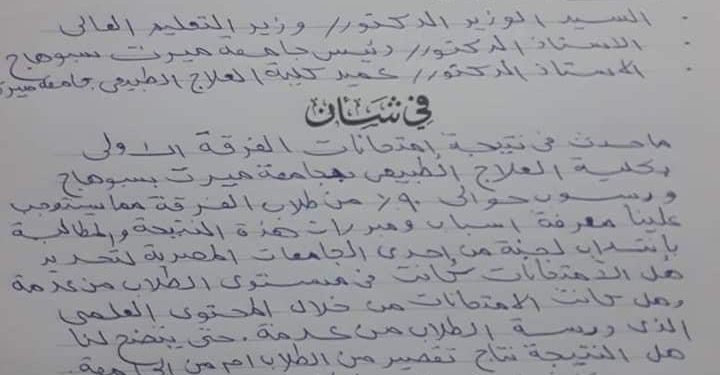 السيد الوزير الدكتور/ وزير التعليم العالى
الاستاذ الدكتور/ رئيس جامعة ميرت بسوهاج
الاستاذ الدكتور/ عميد كلية العلاج الطبيعى بجامعة ميرت
في شان
ماحدث فى نتيجة إمتحانات الفرقة الاولى
بكلية العلاج الطبيعى بجامعة ميرت بسوهاج
ورسوب حوالى ٩٠٪ من طلاب الفرقة مما يستوجب
علينا معرفة اسباب ومبررات هذة النتيجة والمطالبة
بإنتداب لجنة من إحدى الجامعات المصرية لتحديد
هل الامتحانات كانت فى مستوى الطلاب من عدمة
وهل كانت الامتحانات من خلال المحتوى العلمى
الذى درسة الطلاب من عدمة. حتى يتضح لنا
هل النتيجة نتاج تقصير من الطلاب ام من الجامعة.